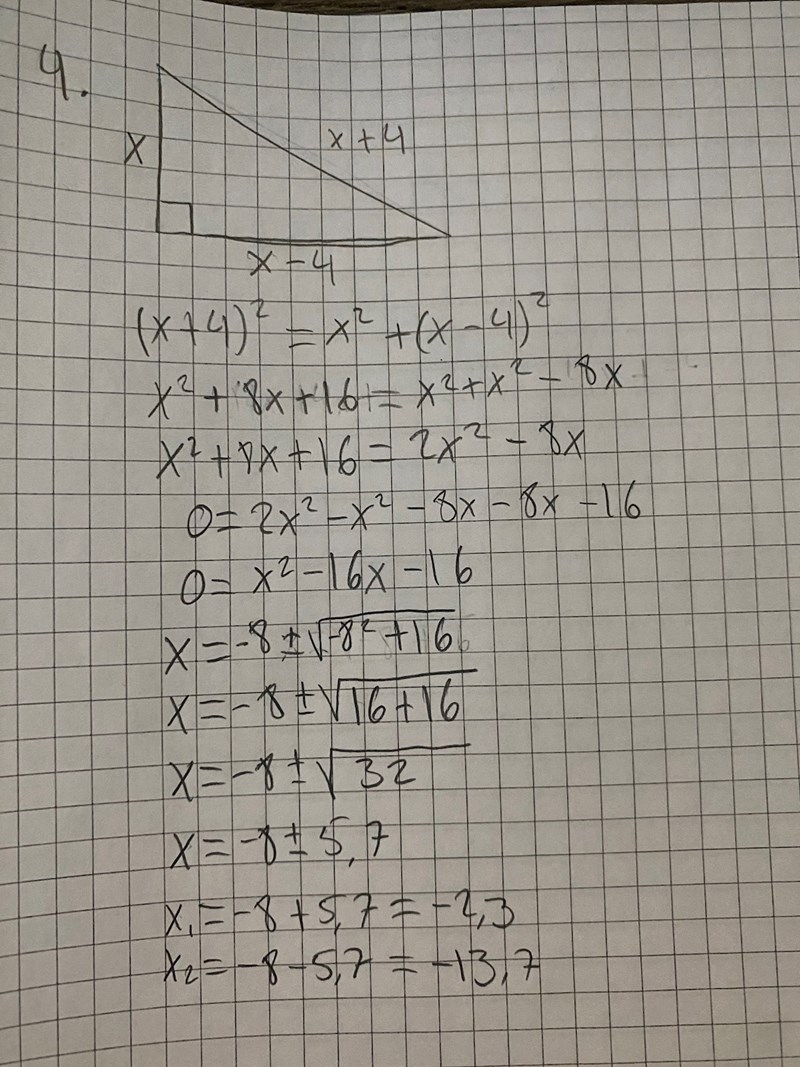 4.
x
x+4
x-4
(x+4)² = x² + (x-4)²
x² + 8x + 16 = x² + x² - 8x
x² + 8x + 16 = 2x² - 8x
0 = 2x² - x² - 8x - 8x - 16
0 = x² - 16x - 16
x = -8 ± √-8² + 16
x = -8 ± √16 + 16
x = -8 ± √32
x = -8 ± 5,7
x₁ = -8 + 5,7 = -2,3
x₂ = -8 - 5,7 = -13,7